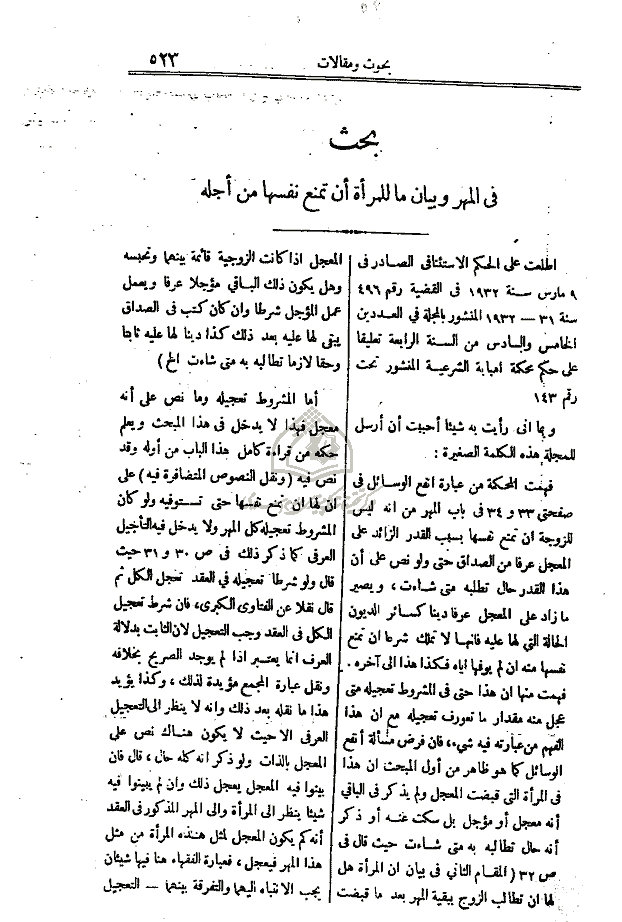 بحوث ومقالات
٥٢٣
بحث
فى المهر وبيان ما للمرأة أن تمنع نفسها من أجله
اطلعت على الحكم الاستئنافى الصادر فى
٩ مارس سنة ١٩٣٢ فى القضية رقم ٤٩٦
سنة ٣١ — ١٩٣٢ المنشور بالمجلة فى العددين
الخامس والسادس من السنة الرابعة تعليقا
على حكم محكمة امبابة الشرعية المنشور تحت
رقم ١٤٣
وبما انى رأيت به شيئا أحببت أن أرسل
للمجلة هذه الكلمة الصغيرة :
فهمت المحكمة من عبارة انفع الوسائل فى
صفحتى ٣٣ و ٣٤ فى باب المهر من انه ليس
للزوجة ان تمنع نفسها بسبب القدر الزائد على
المعجل عرفا من الصداق حتى ولو نص على أن
هذا القدر حال تطلبه متى شاءت ، ويصير
ما زاد على المعجل عرفا دينا كسائر الديون
الحالة التى لها عليه فانها لا تملك شرعا ان تمنع
نفسها منه ان لم يوفها اياه فكذا هذا الى آخره .
فهمت منها ان هذا حتى فى المشروط تعجيله متى
عجل منه مقدار ما تعورف تعجيله مع ان هذا
الفهم من عبارته فيه شىء، فان فرض مسألة أنفع
الوسائل كما هو ظاهر من أول المبحث ان هذا
فى المرأة التى قبضت المعجل ولم يذكر فى الباقى
أنه معجل أو مؤجل بل سكت عنه أو ذكر
أنه حال تطالبه به متى شاءت حيث قال فى
ص ٣٢ ( المقام الثانى فى بيان ان المرأة هل
لها ان تطالب الزوج ببقية المهر بعد ما قبضت
المعجل اذا كانت الزوجية قائمة بينهما وتحبسه
وهل يكون ذلك الباقى مؤجلا عرفا ويعمل
عمل المؤجل شرطا وان كان كتب فى الصداق
يبقى لها عليه بعد ذلك كذا دينا لها عليه ثابتا
وحقا لازما تطالبه به متى شاءت الخ )
أما المشروط تعجيله وما نص على أنه
معجل فهذا لا يدخل فى هذا المبحث ويعلم
حكمه من قراءة كامل هذا الباب من أوله وقد
نص فيه ( ونقل النصوص المتضافرة فيه ) على
ان لها ان تمنع نفسها حتى تستوفيه ولو كان
المشروط تعجيله كل المهر ولا يدخل فيه التأجيل
العرفى كما ذكر ذلك فى ص ٣٠ و ٣١ حيث
قال ولو شرطا تعجيله فى العقد تعجل الكل ثم
قال نقلا عن الفتاوى الكبرى، فان شرط تعجيل
الكل فى العقد وجب التعجيل لان الثابت بدلالة
العرف انما يعتبر اذا لم يوجد الصريح بخلافه
ونقل عبارة المجمع مؤيدة لذلك ، وكذا يؤيد
هذا ما نقله بعد ذلك وانه لا ينظر الى التعجيل
العرفى الا حيث لا يكون هناك نص على
المعجل بالذات ولو ذكر انه كله حال ، قال فان
بينوا فيه المعجل يعجل ذلك وان لم يبينوا فيه
شيئا ينظر الى المرأة والى المهر المذكور فى العقد
أنه كم يكون المعجل لمثل هذه المرأة من مثل
هذا المهر فيعجل ، فعبارة الفقهاء هنا فيها شيئان
يجب الانتباه اليهما والتفرقة بينهما — التعجيل